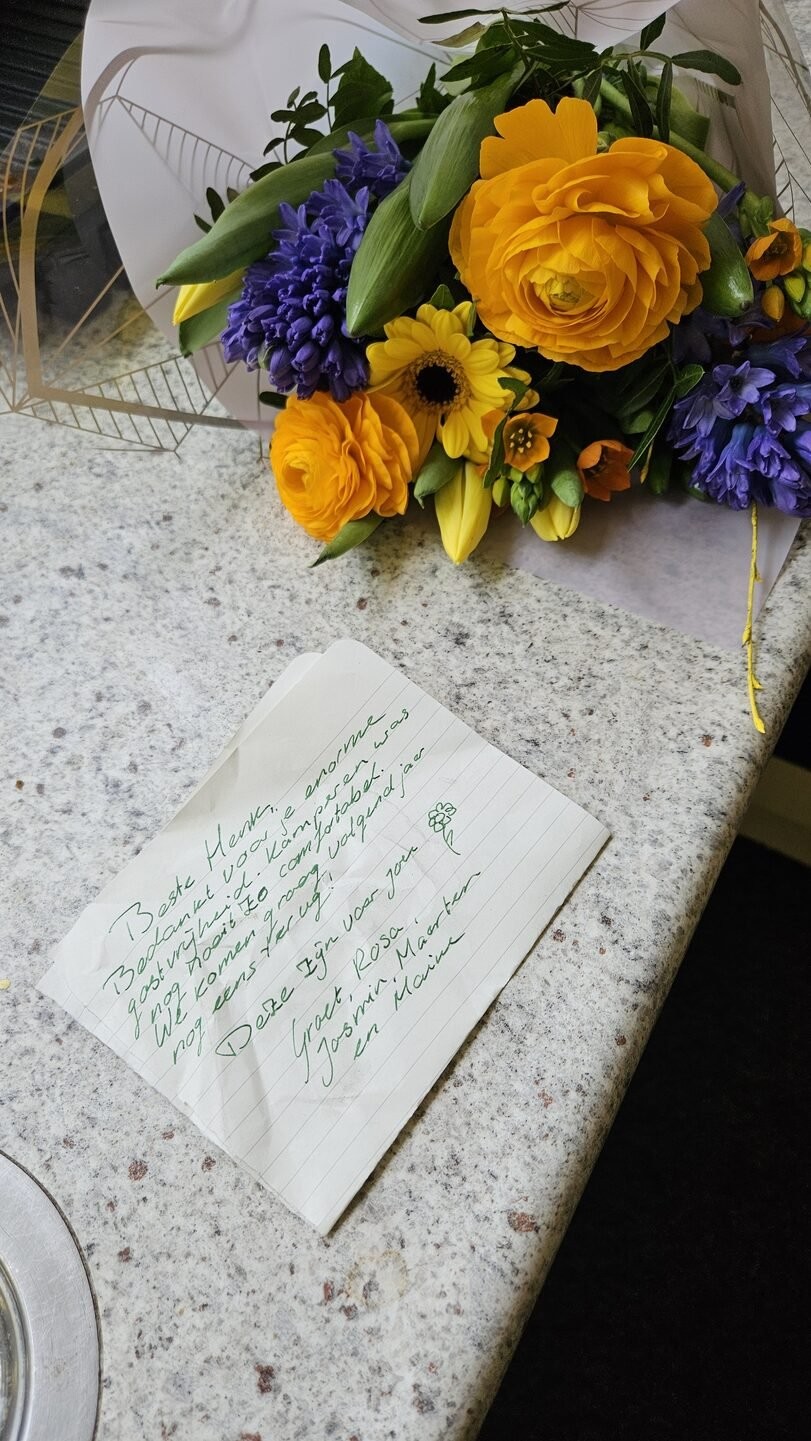 Beste Henk,
Bedankt voor je enorme
gastvrijheid. Kamperen was
nog nooit zo comfortabel.
We komen graag volgend jaar
nog eens terug!
Deze zijn voor jou
Groet, Rosa,
Jasmin, Maarten
en Marine